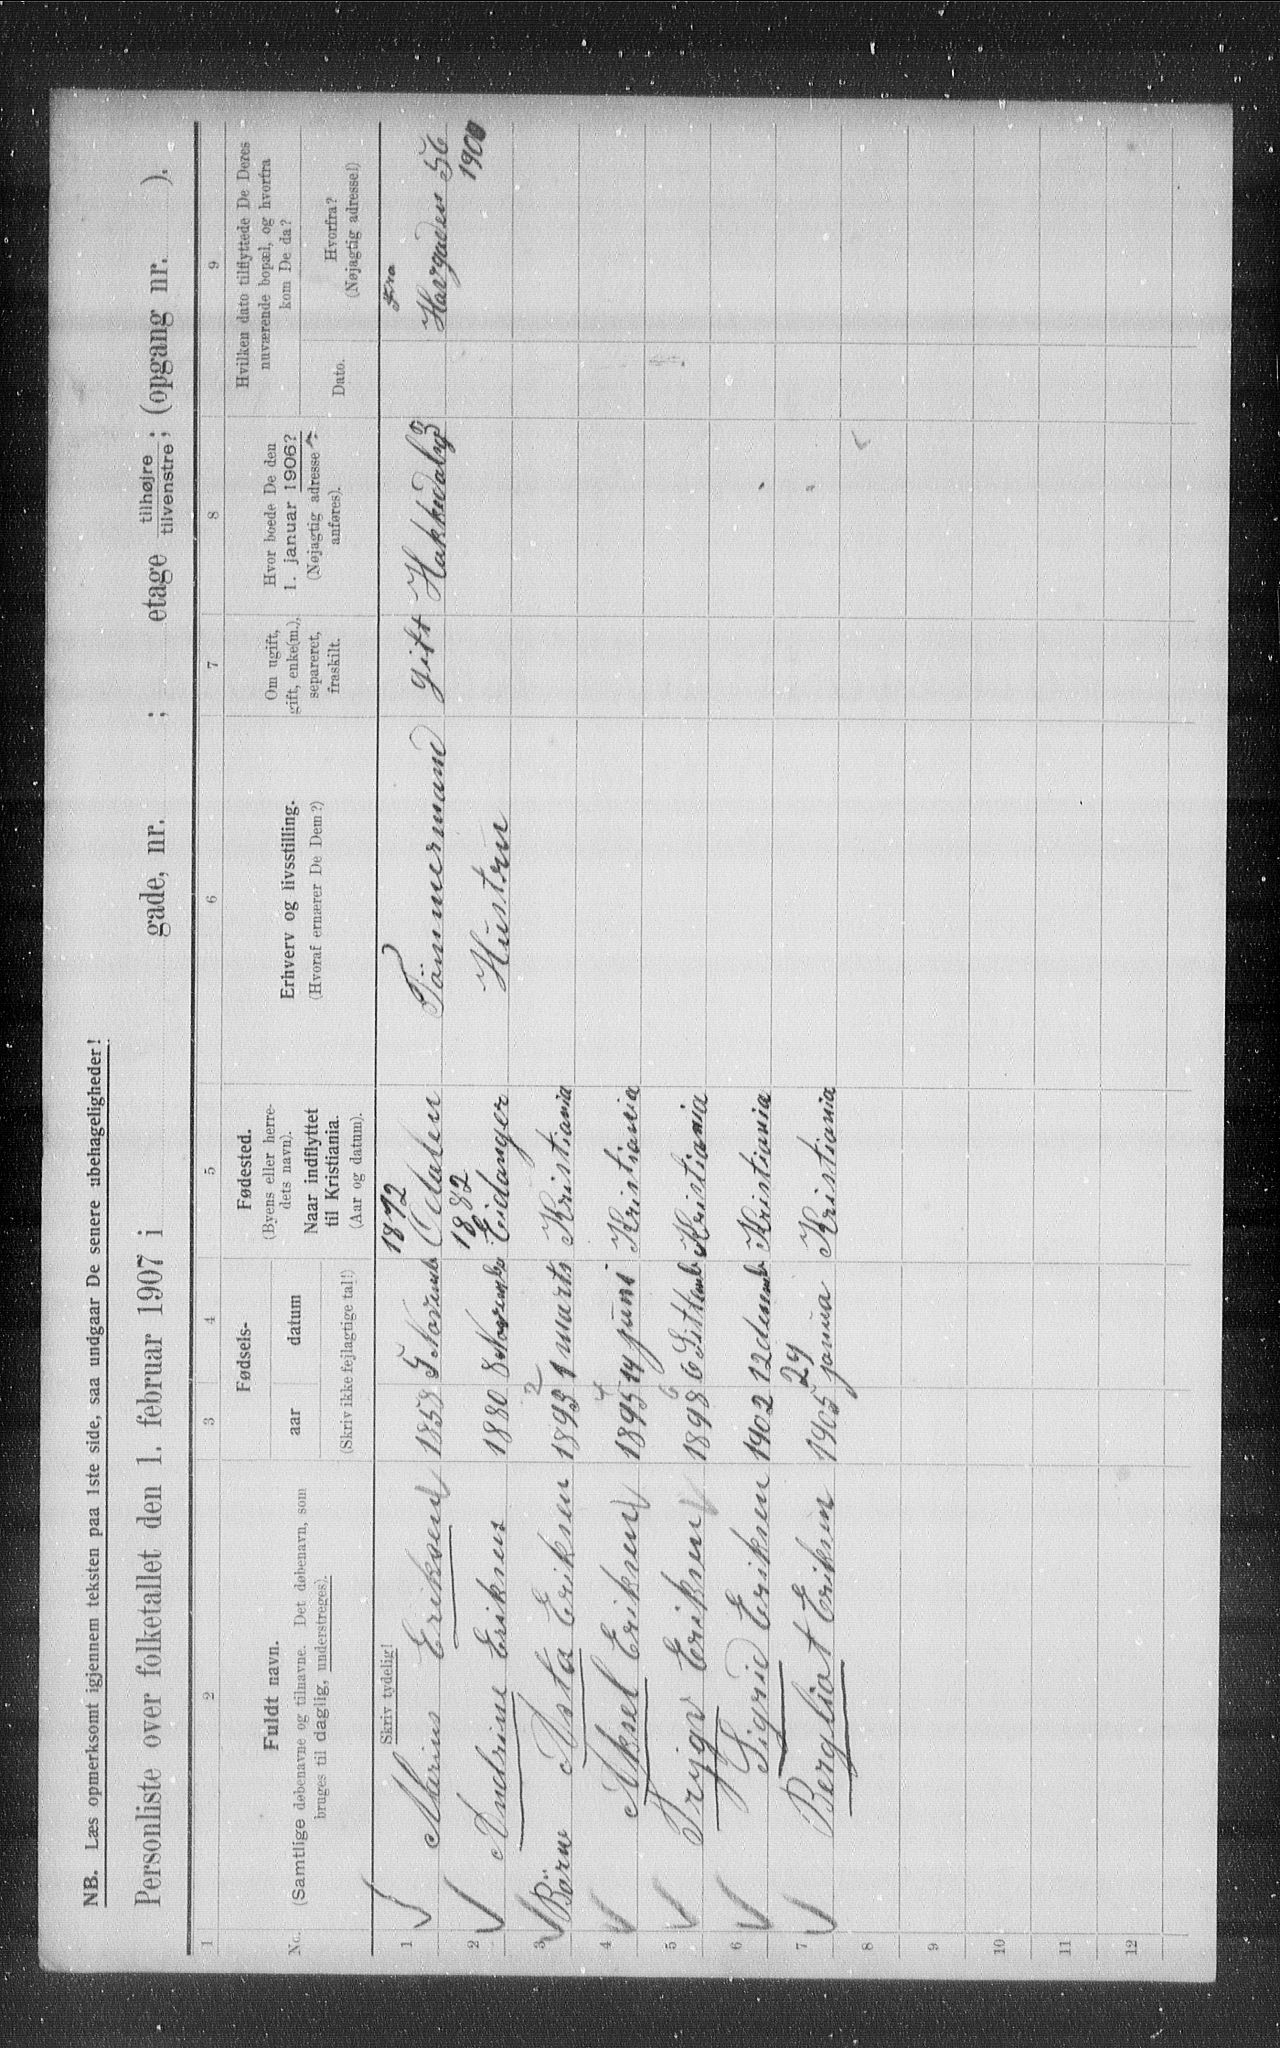 NB. Læs opmerksomt igjennem teksten paa 1ste side, saa undgaar De senere ubehageligheder!
Personliste over folketallet den 1. februar 1907 i gade, nr. ; etage tilhøjre/tilvenstre; (opgang nr. ).
1 2 3 4 5 6 7 8 9
No.
Fuldt navn.
(Samtlige døbenavne og tilnavne. Det døbenavn, som
bruges til daglig, understreges).
Fødsels-
aar datum
(Skriv ikke fejlagtige tal!)
Fødested.
(Byens eller herre-
dets navn).
Naar indflyttet
til Kristiania.
(Aar og datum).
Erhverv og livsstilling.
(Hvoraf ernærer De Dem?)
Om ugift,
gift, enke(m.),
separeret,
fraskilt.
Hvor boede De den
1. januar 1906?
(Nøjagtig adresse
anføres).
Hvilken dato tilflyttede De Deres
nuværende bopæl, og hvorfra
kom De da?
Dato.
Hvorfra?
(Nøjagtig adresse!)
Skriv tydelig!
1872 Fra
1 Marius Eriksen 1858 5 Novemb Odalen Tömmermand gift Hakkedalvg 3 Havgaden 56
1882 1900
2 Andrine Eriksen 1880 8 November Eidanger Hüstru
2
3 Börn Asta Eriksen 1893 1 marts Kristiania
4
4 Aksel Eriksen 1895 14 juni Kristiania
6
5 Trygv Eriksen 1898 6 Kristiania
6 Sigrid Eriksen 1902 12 desemb Kristiania
29
7 Bergliot Eriksen 1905 janua Kristiania
8
9
10
11
12